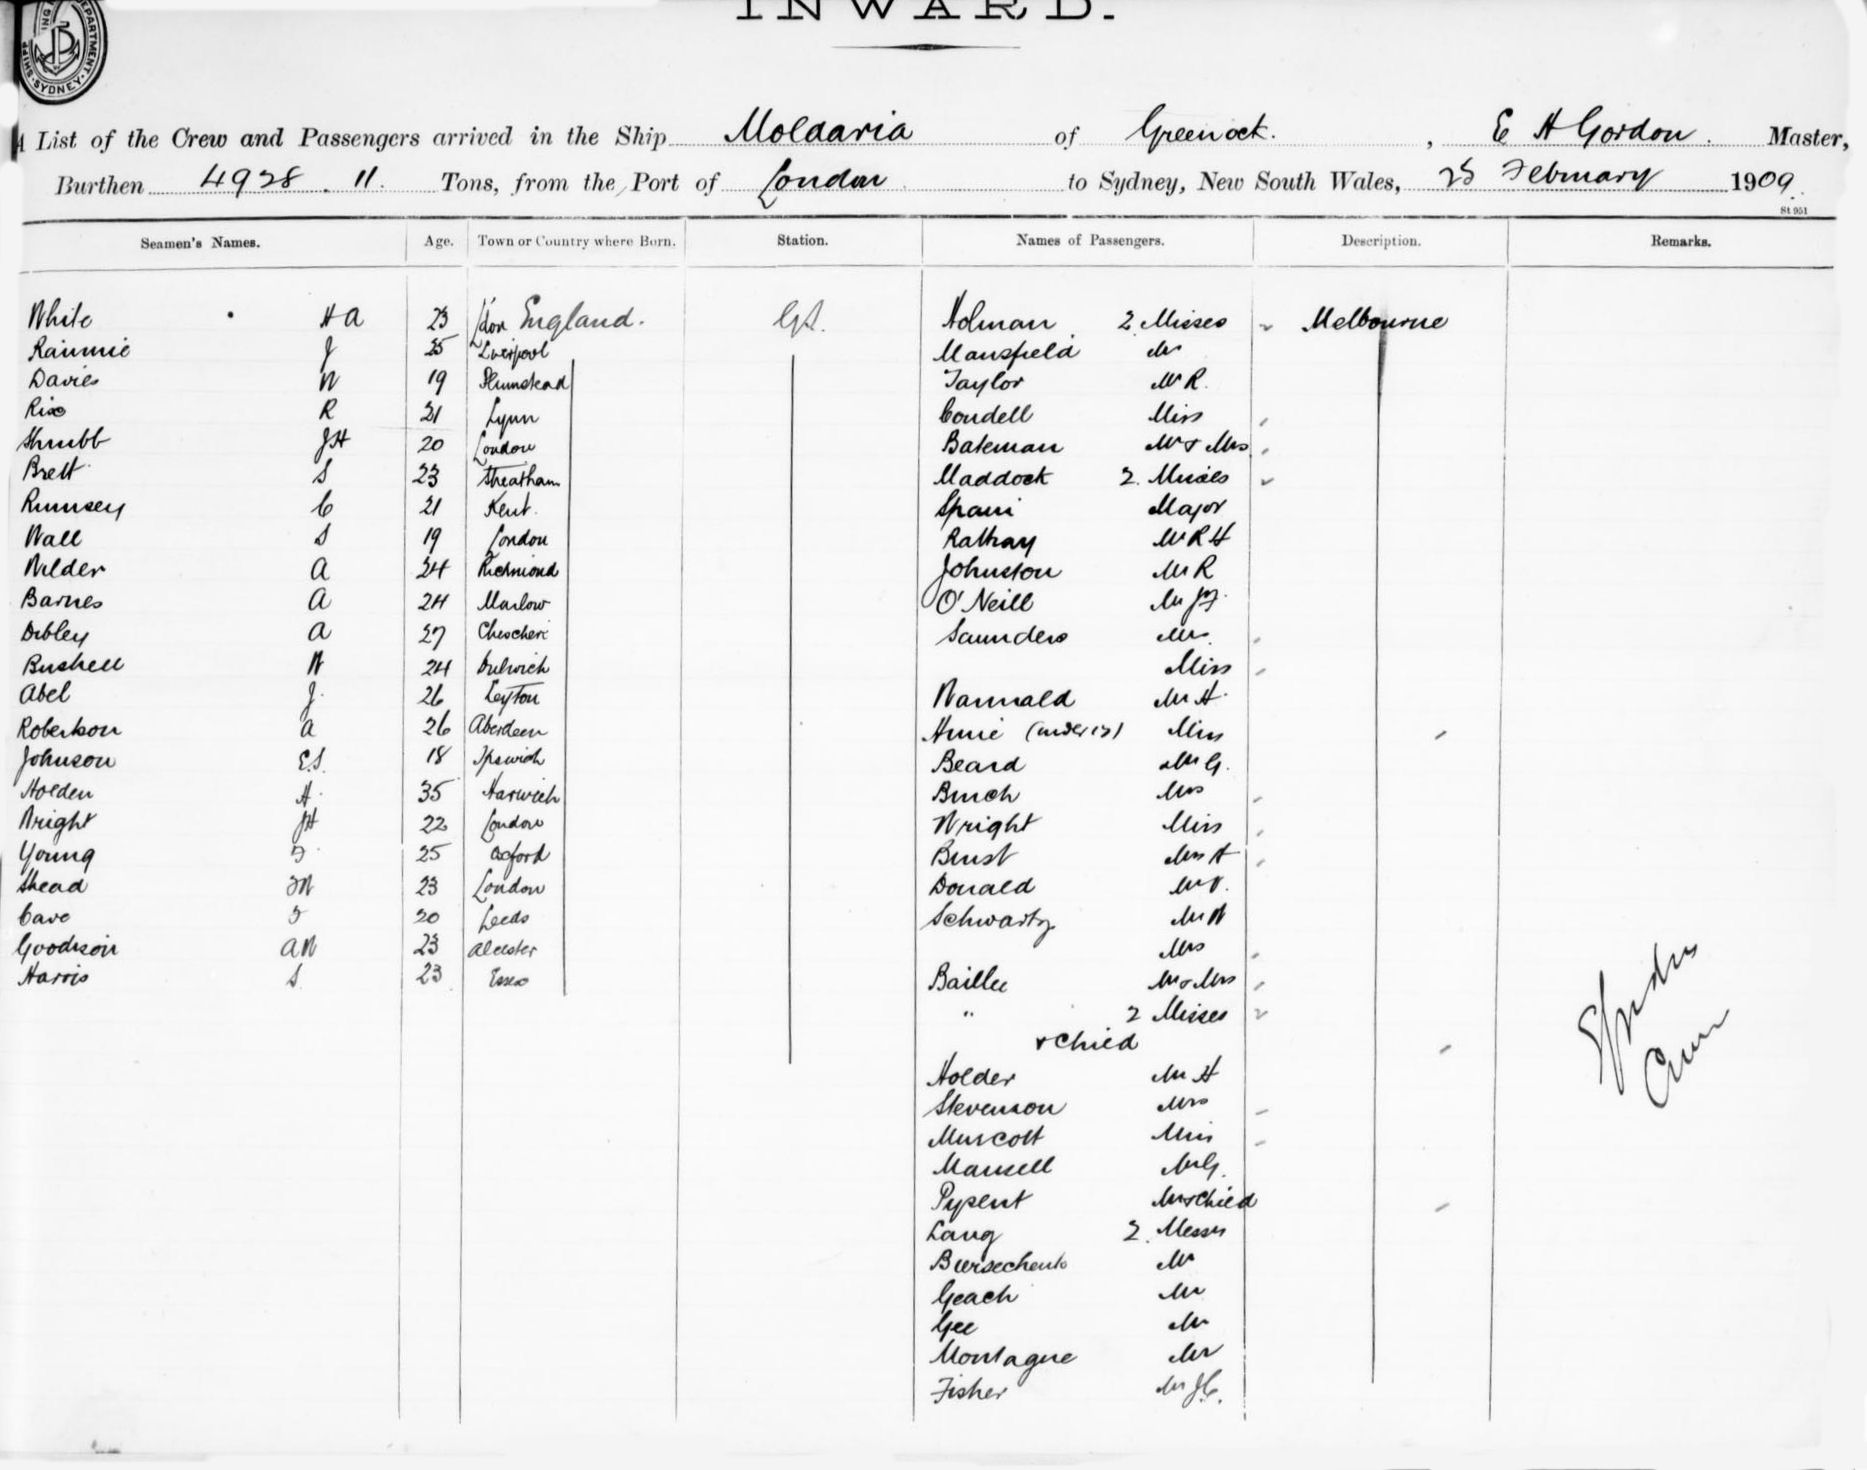 INWARD.
SHIPPING DEPARTMENT SYDNEY
A List of the Crew and Passengers arrived in the Ship Moldavia of Greenock. , E H Gordon. Master,
Burthen 4928.11. Tons, from the Port of London to Sydney, New South Wales, 25 February 1909.
St 951
Seamen's Names. Age. Town or Country where Born. Station. Names of Passengers. Description. Remarks.
White H A 23 L'don England. G.S. Holman 2 Misses Melbourne
J 25 Liverpool Mansfield Mr
Davies W 19 Plumstead Taylor Mr R.
Rix R 21 Lynn Condell Miss
Shrubb JH 20 London Bateman Mr & Mrs
Brett S 23 Streatham Maddock 2 Misses
Rumsey C 21 Kent. Major
Wall S 19 London Rattray Mr R H
Wilder A 24 Richmond Johnston Mr R
Barnes A 24 Marlow O'Neill Mr
Dibley A 27 Saunders Mrs
Bushell W 24 Dulwich Miss
Abel J. 26 Leyton Mr H
Robertson A 26 Aberdeen Annie (under 12) Miss
Johnson E.S. 18 Ipswich Beard Mr G.
Holden H 35 Harwich Mrs
Wright JH 22 London Wright Miss
Young F 25 Oxford Mrs A
Shead FW 23 London Donald
Cave F 20 Leeds Schwartz Mr W
Goodison AW 23 Alcester Mrs
Harris S 23 Essex Baillee Mr & Mrs
" 2 Misses
& Child
Holder Mr H
Stevenson Mrs
Muscott Miss
Mansell Mr G.
Pypent & Child
Lang 2 Messrs
Mr
Geach Mr
Gee Mr
Montague Mr
Fisher Mr J.C.